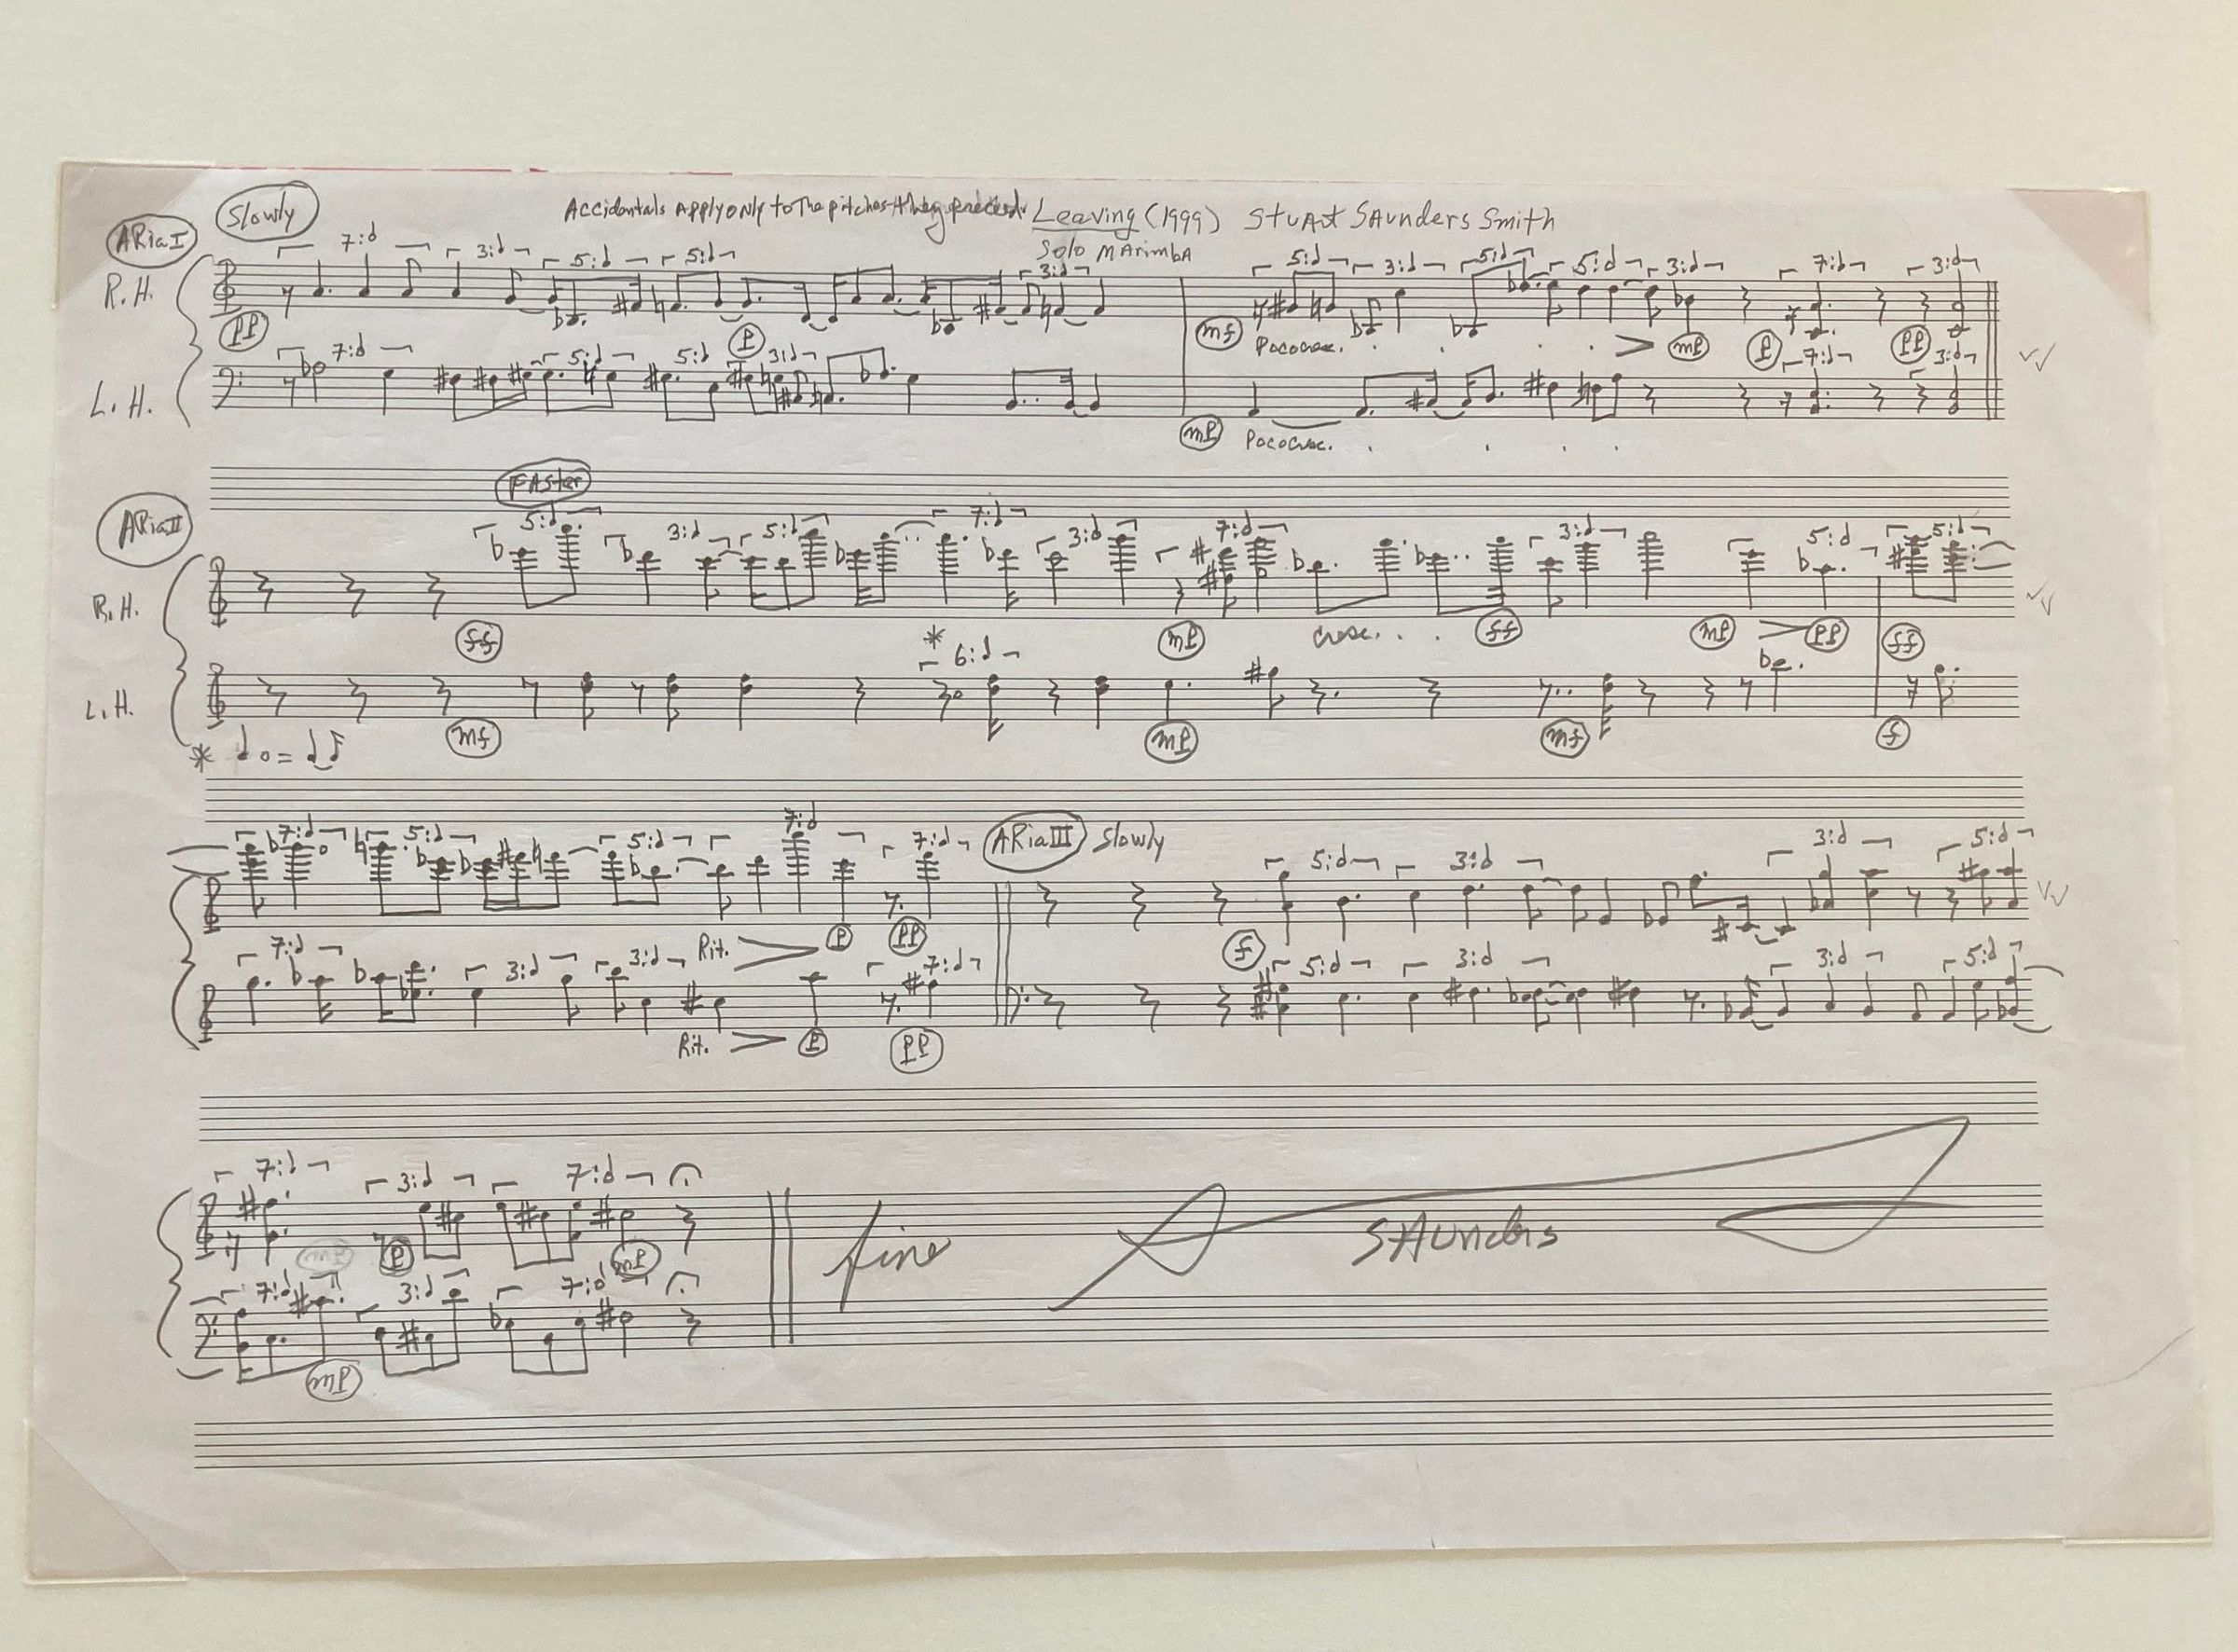 Accidentals Apply only to The pitches They precede. Leaving (1999) Stuart Saunders Smith
Solo Marimba
Aria I Slowly
7:d 3:d 5:d 5:d 3:d 5:d 3:d 5:d 5:d 3:d 7:d 3:d
R.H.
pp p mf Poco cresc. . . . . > mp p pp
7:d 5:d 5:d 3:d 7:d 3:d
L.H.
mp Poco cresc. . . . .
Aria II Faster
5:d 3:d 5:d 7:d 3:d 7:d 3:d 5:d 5:d
R.H.
ff * mp cresc. . . ff mp > pp ff
6:d
L.H.
mf mp mf f
* d o = d
7:d 5:d 5:d 7:d 7:d Aria III Slowly 5:d 3:d 3:d 5:d
Rit. p pp f
7:d 3:d 3:d 7:d 5:d 3:d 3:d 5:d
Rit. > p pp
7:d 3:d 7:d
mp p mp fine Saunders
7:d 3:d 7:d
mp